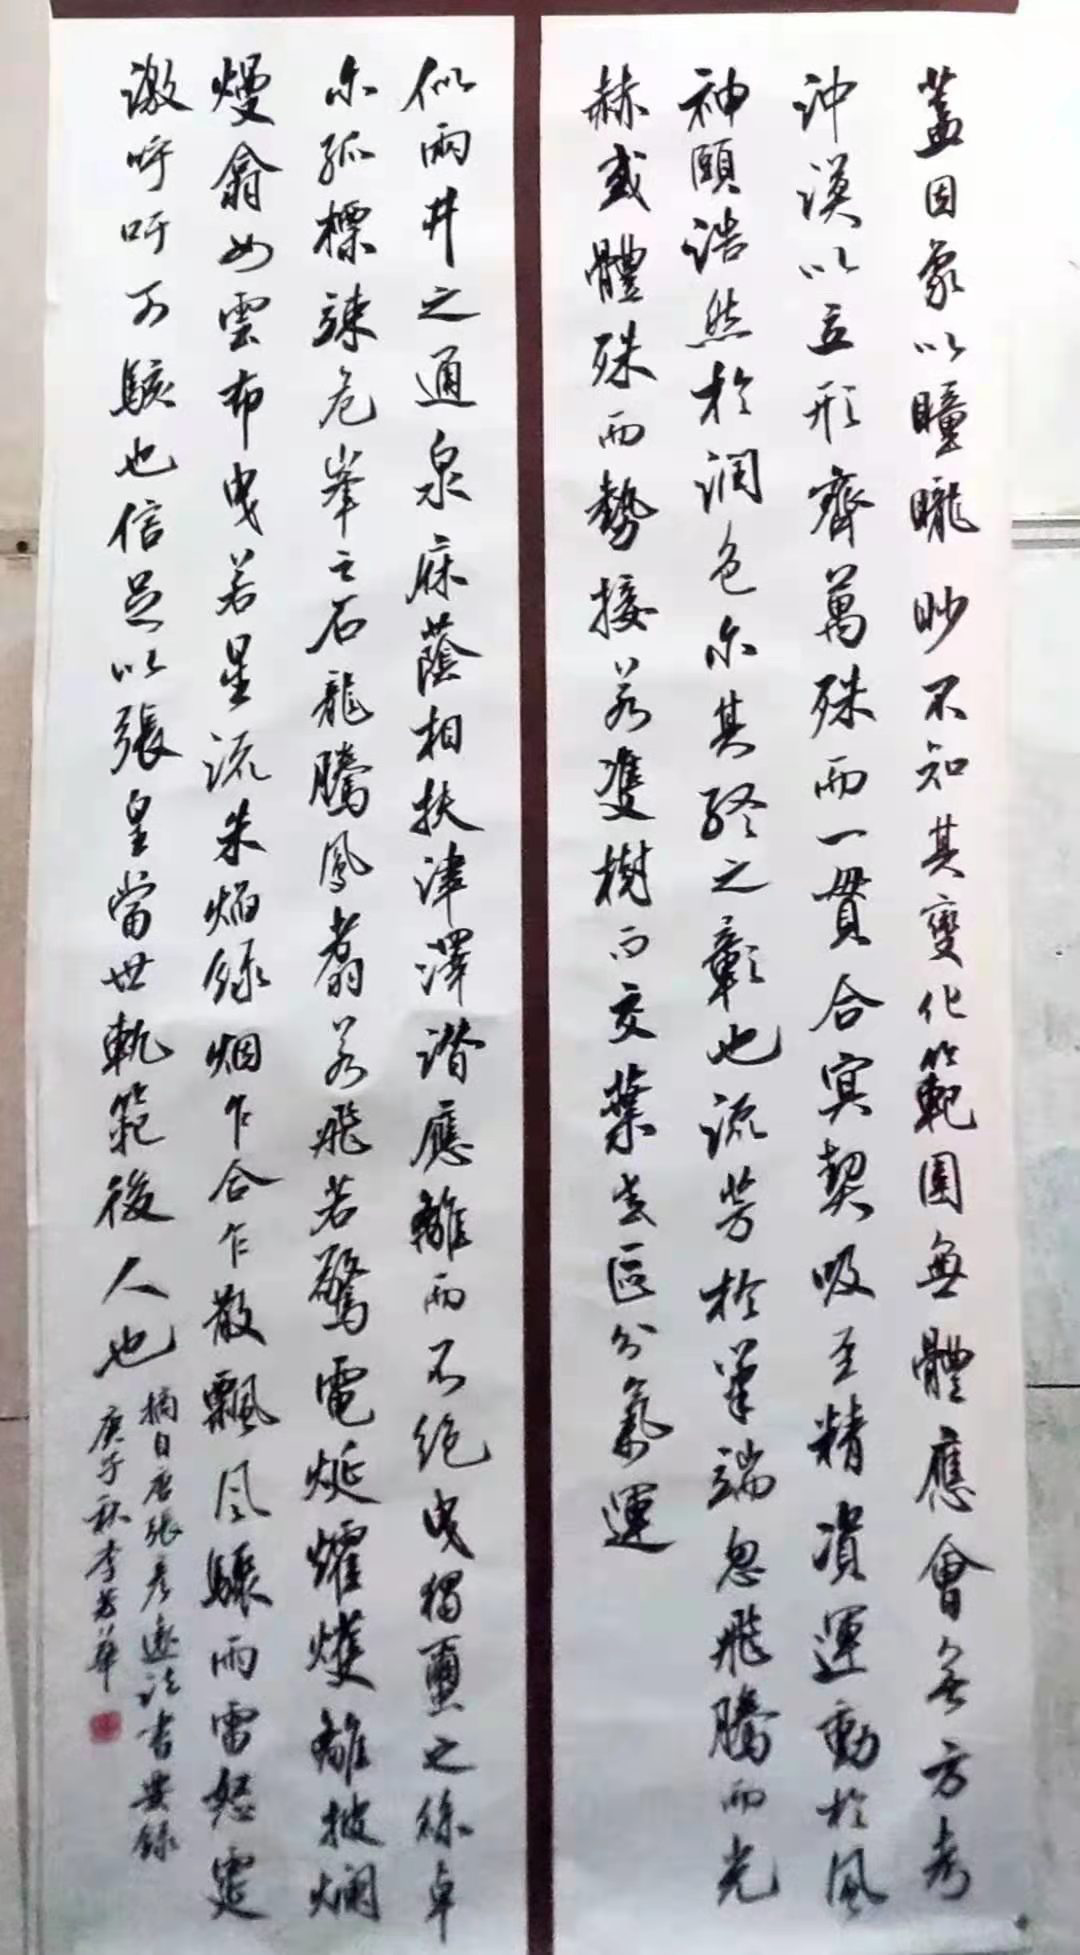 蓋因象以瞳矓眇不知其變化範圍無體應會無方考
沖漠以立形齊萬殊而一貫合冥契吸至精資運動於風
神頤浩然於潤色尔其終之彰也流芳於筆端忽飛騰而光
赫或體殊而勢接若雙樹而交葉者區分氣運
似兩井之通泉庥蔭相扶津澤潛應離而不絕曳獨繭之絲卓
尔孤標竦危峯之石龍騰鳳翥若飛若驚電烻燿㸌離披爛
熳翕如雲布曳若星流朱焰綠烟乍合乍散飄風驟雨雷怒霆
激呼吁可駭也信足以張皇當世軌範後人也
摘自唐張彥遠法書要錄
庚子秋李芳華